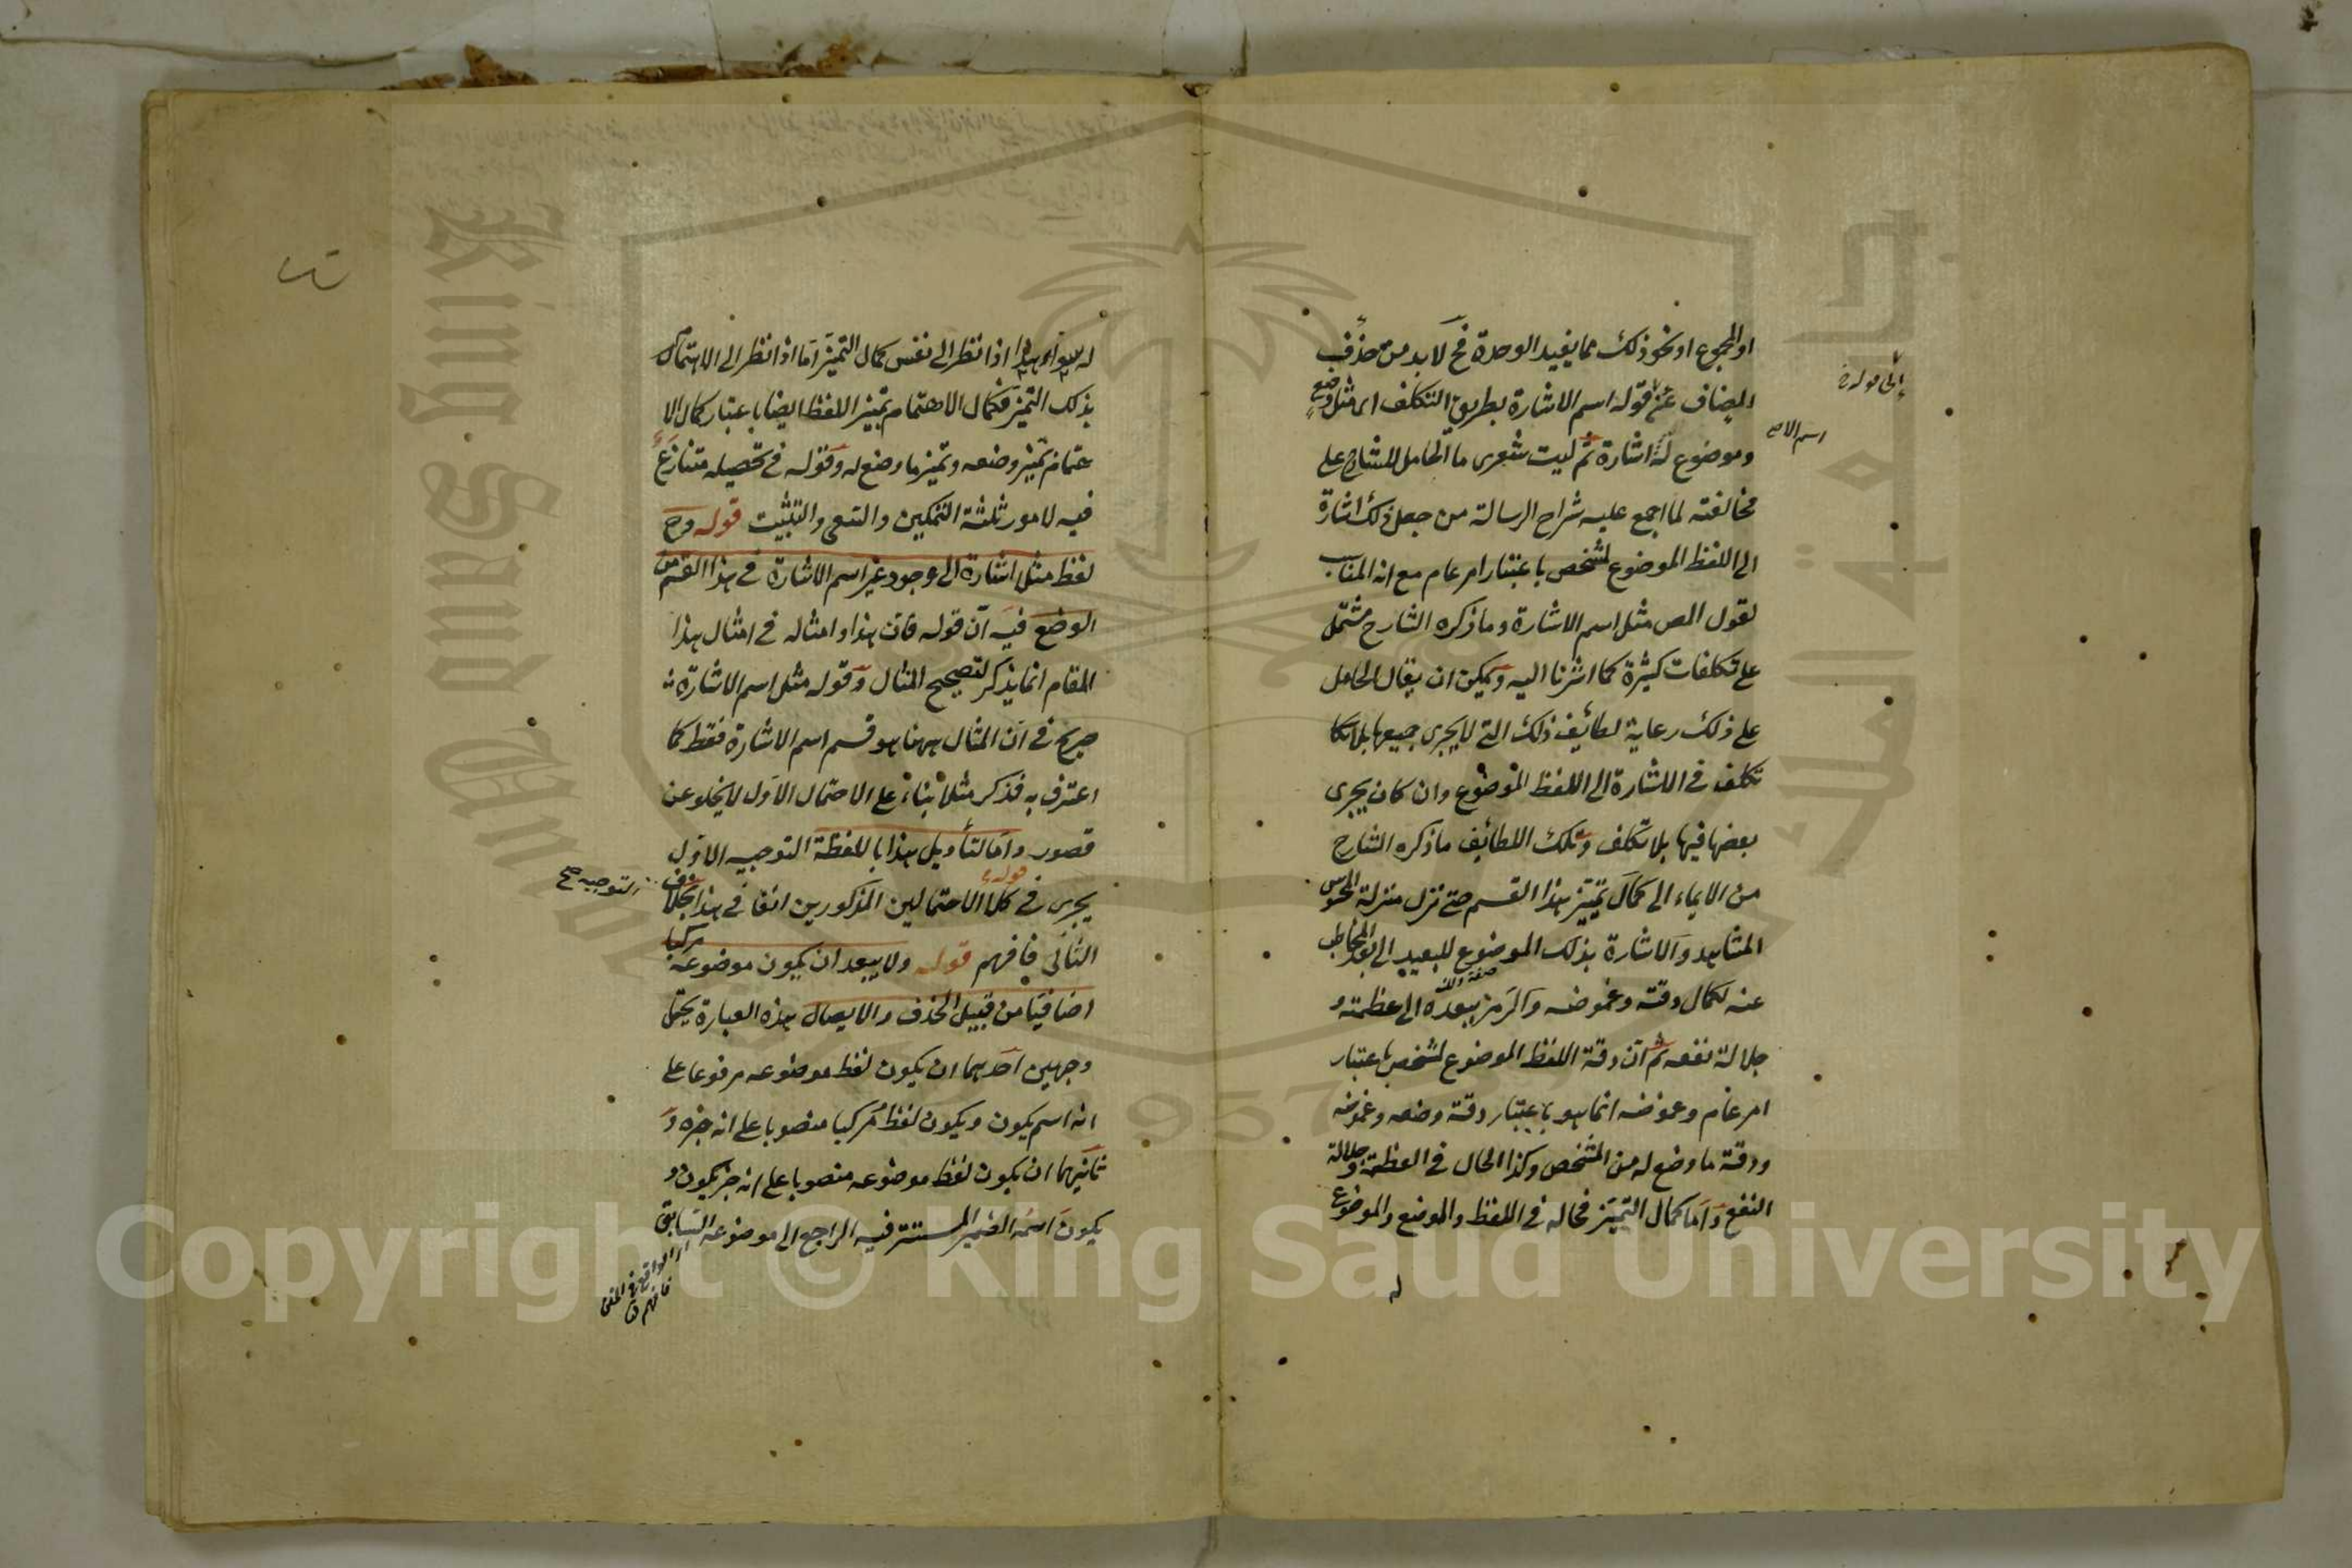 او المجموع او نحو ذلك مما يفيد الوحدة فح لا بد من حذف
المضاف عن قوله اسم الاشارة بطريق التكلف اى مثل وضع
وموضوع له اشارة ثم ليت شعرى ما الحامل للشارح على
مخالفته لما اجمع عليه شراح الرسالة من جعل ذلك اشارة
الى اللفظ الموضوع لمشخص باعتبار امر عام مع انه المناسب
لقول المص مثل اسم الاشارة وما ذكره الشارح مشتمل
على تكلفات كثيرة كما اشرنا اليه ويمكن ان يقال الحامل
على ذلك رعاية لطائف ذلك التى لا يجرى جميعها بلا
تكلف فى الاشارة الى اللفظ الموضوع وان كان يجرى
بعضها فيها بلا تكلف وتلك اللطائف ما ذكره الشارح
من الايماء الى كمال تميز هذا القسم حتى نزل منزلة المحسوس
المشاهد والاشارة بذلك الموضوع للبعيد الى بعد المخاطب
عنه لكمال دقته وغموضه والرمز ببعده الى عظمته و
جلالة نفعه ثم ان دقة اللفظ الموضوع لمشخص باعتبار
امر عام وغموضه انما هو باعتبار دقة وضعه وغموضه
ودقة ما وضع له من المشخص وكذا الحال فى العظمة وجلالة
النفع واما كمال التميز فحاله فى اللفظ والموضع والموضوع
له
اسم الا صح
له سواء هذا اذا نظر الى نفس كمال التميز اما اذا نظر الى الاهتمام
بذلك التميز فكمال الاهتمام بتميز اللفظ ايضا باعتبار كمال الا
هتمام بتميز وضعه وتميز ما وضع له وقوله فى تحصيله متنازع
فيه لامور ثلثة التمكين والتعى والتثبيت قوله وح
لفظ مثل اشارة الى وجود غير اسم الاشارة فى هذا القسم من
الوضع فيه ان قوله فان هذا وامثاله فى امثال هذا
المقام انما يذكر لتصحيح المثال وقوله مثل اسم الاشارة
صريح فى ان المثال ههنا هو قسم اسم الاشارة فقط كما
اعترف به فذكر مثلا بناء على الاحتمال الاول لا يخلو عن
قصور واما لتأويل هذا باللفظة التوجيه الاول
يجرى فى كلا الاحتمالين المذكورين انفا فى هذا بخلاف
التوجيه صح
الثانى فافهم قوله ولا يبعد ان يكون موضوعه مركبا
اضافيا من قبيل الحذف والايصال هذه العبارة يحتمل
وجهين احدهما ان يكون لفظ موضوعه مرفوعا على
انه اسم يكون ويكون لفظ مركبا منصوبا على انه خبره و
ثانيهما ان يكون لفظ موضوعه منصوبا على انه خبر يكون و
يكون اسمه الضمير المستتر فيه الراجع الى موضوعه السابق
الواقع فى المتن
فافهم
Copyright © King Saud University
King Saud
جامعة الملك
957